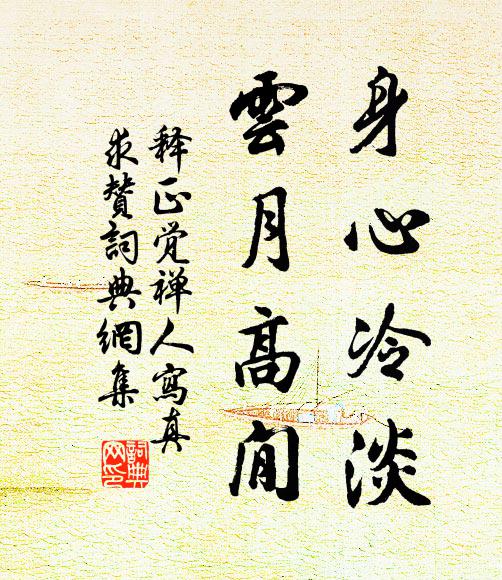 身心冷淡
雲月高閒
释正觉禅人寫真
求贊詞典網集
詞典
网印